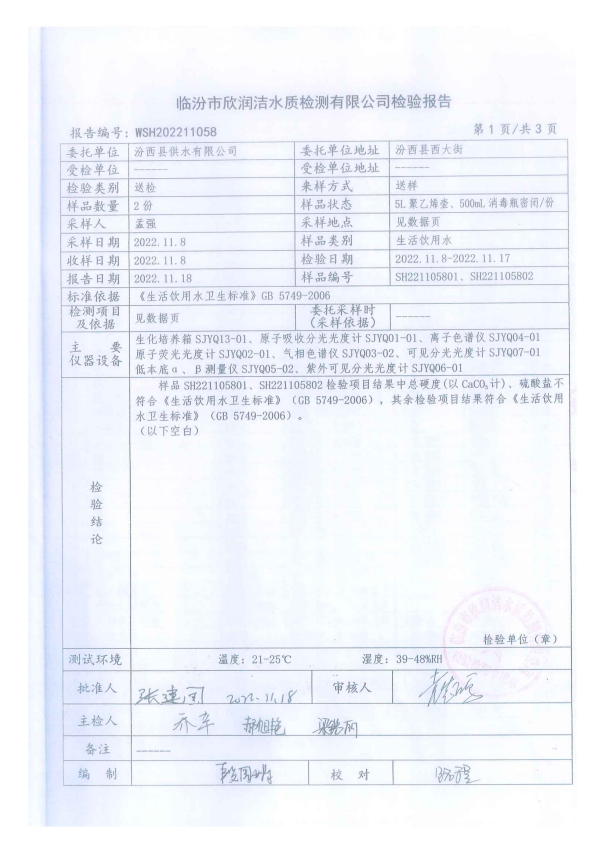 临汾市欣润洁水质检测有限公司检验报告
报告编号：WSH202211058 第 1 页/共 3 页
委托单位 汾西县供水有限公司 委托单位地址 汾西县西大街
受检单位 ------ 受检单位地址 ------
检验类别 送检 来样方式 送样
样品数量 2 份 样品状态 5L 聚乙烯壶、500mL 消毒瓶密闭/份
采样人 孟强 采样地点 见数据页
采样日期 2022.11.8 样品类别 生活饮用水
收样日期 2022.11.8 检验日期 2022.11.8-2022.11.17
报告日期 2022.11.18 样品编号 SH221105801、SH221105802
标准依据 《生活饮用水卫生标准》GB 5749-2006
检测项目及依据 见数据页 委托采样时（采样依据） ------
主要仪器设备 生化培养箱 SJYQ13-01、原子吸收分光光度计 SJYQ01-01、离子色谱仪 SJYQ04-01
原子荧光光度计 SJYQ02-01、气相色谱仪 SJYQ03-02、可见分光光度计 SJYQ07-01
低本底α、β测量仪 SJYQ05-02、紫外可见分光光度计 SJYQ06-01
检验结论
样品 SH221105801、SH221105802 检验项目结果中总硬度(以 CaCO₃计)、硫酸盐不
符合《生活饮用水卫生标准》（GB 5749-2006），其余检验项目结果符合《生活饮用
水卫生标准》（GB 5749-2006）。
（以下空白）
检验单位（章）
测试环境 温度：21-25℃ 湿度：39-48%RH
批准人 2022.11.18 审核人
主检人
备注 ------
编 制 校 对